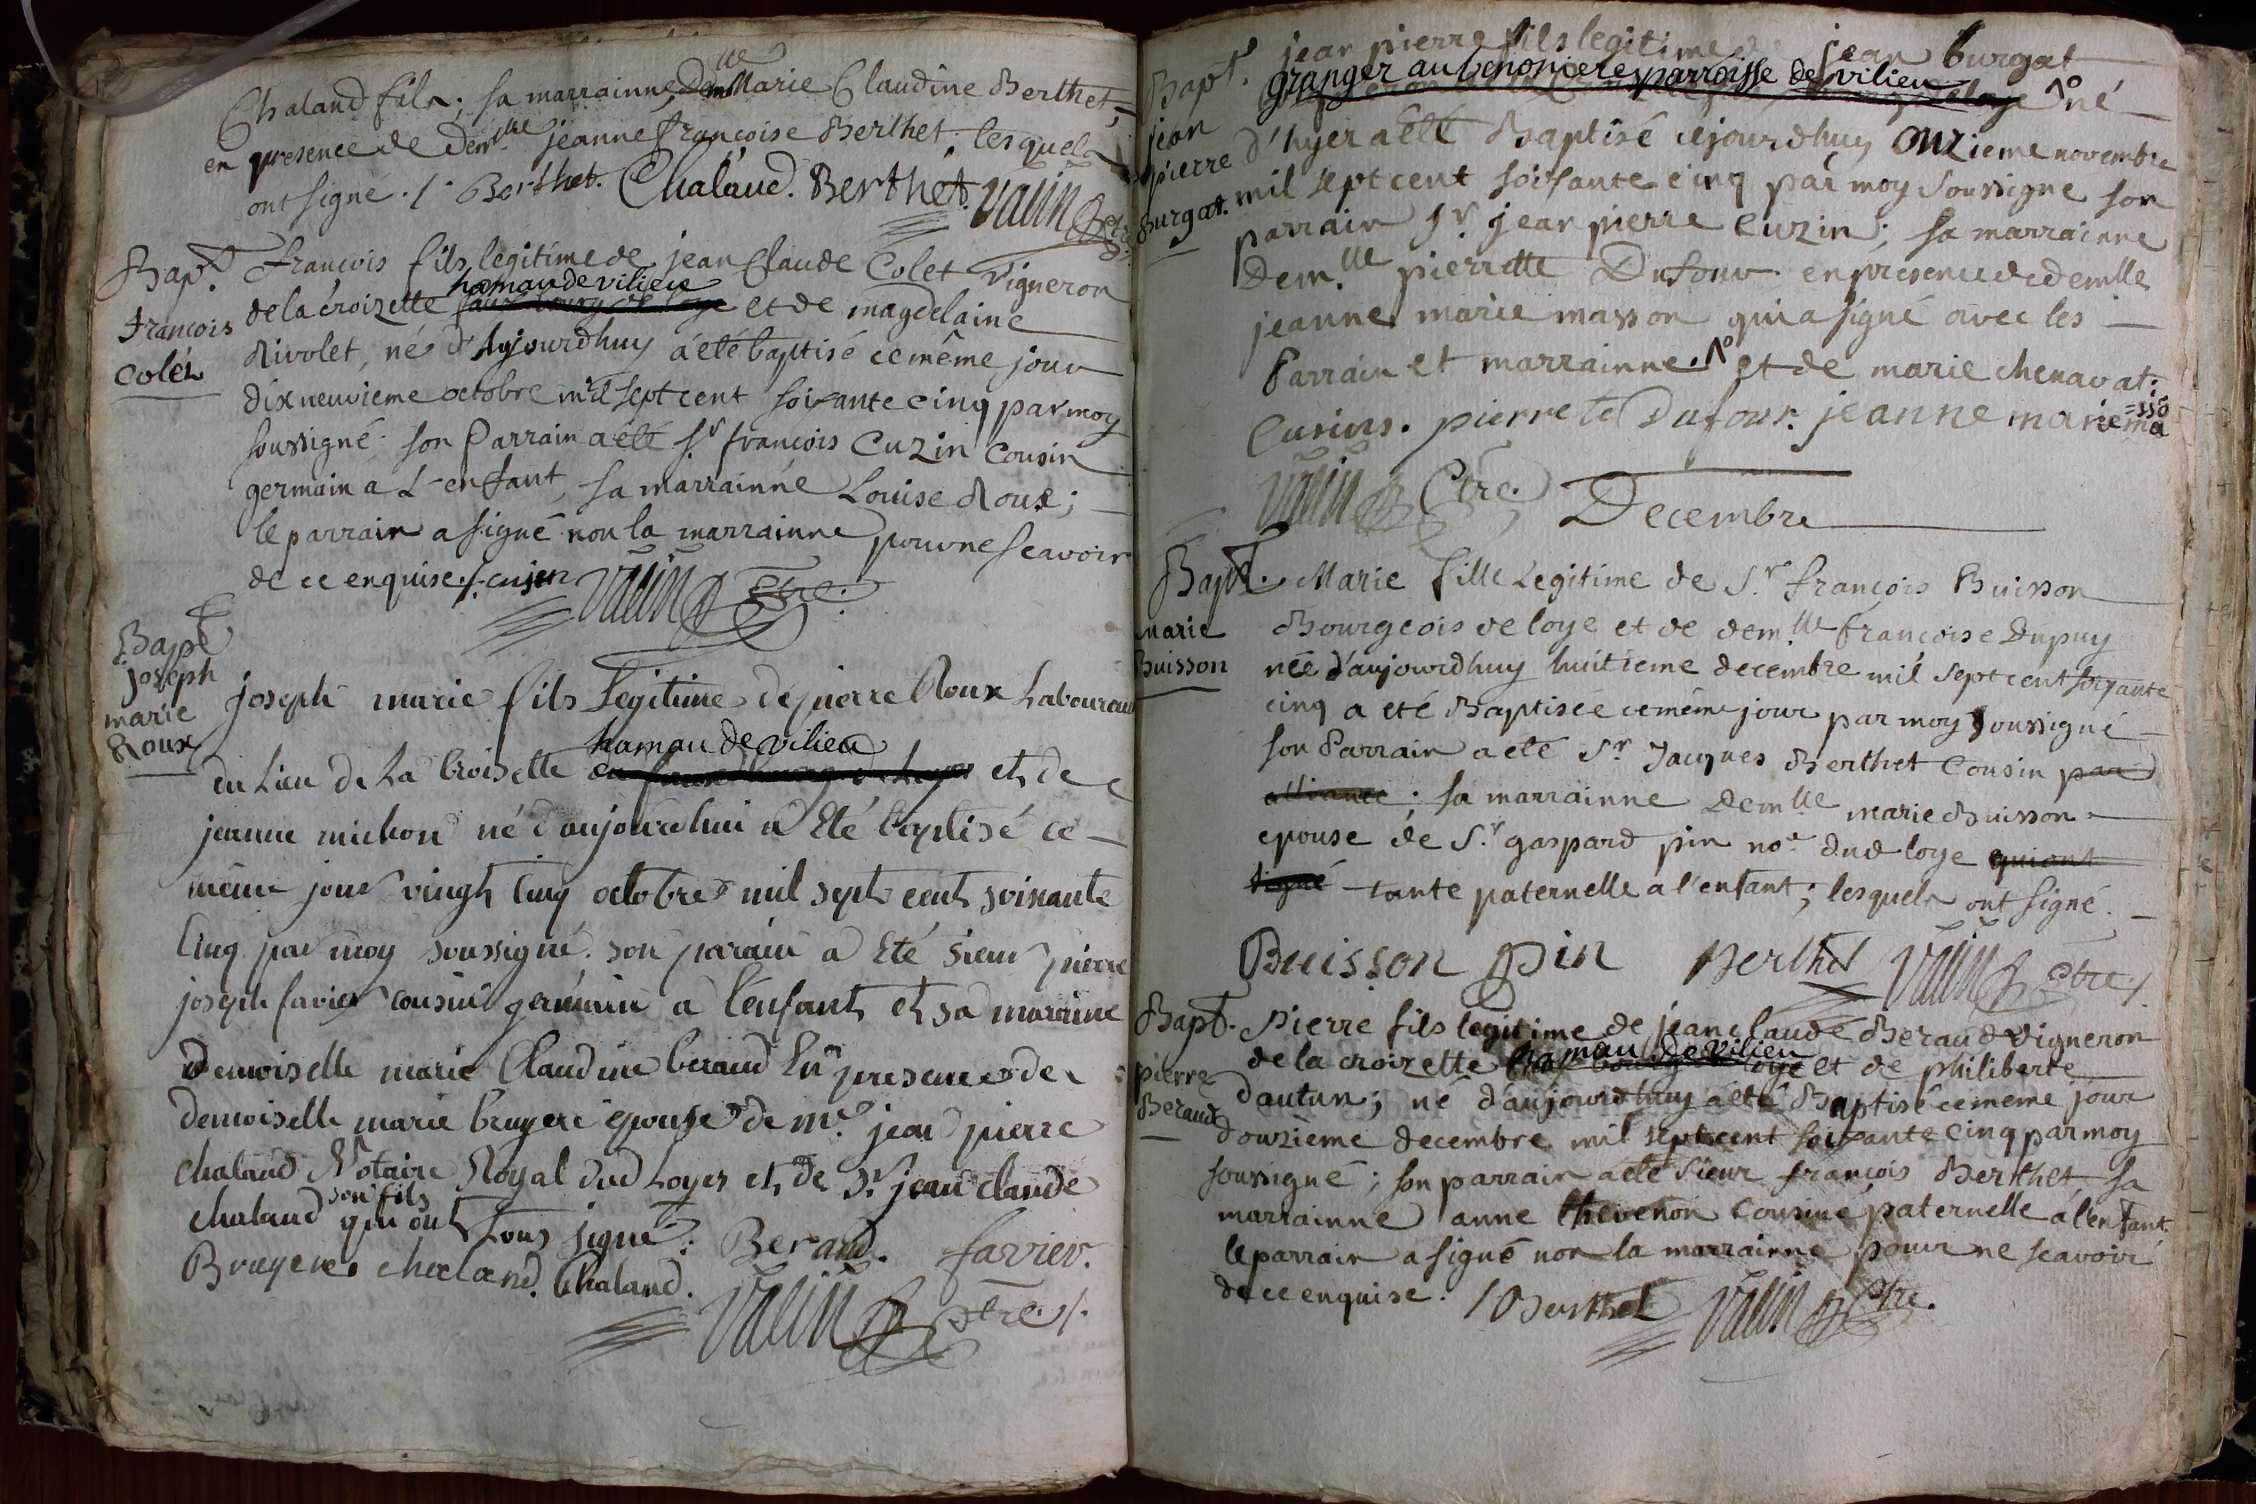 Chaland fils; sa marrainne demlle Marie Claudine Berthet,
en presence de demlle jeanne françoise Berthet; lesquels
ont signé ./. Berthet. Chaland. Berthet. Valin ptre
Bapt. françois fils legitime de jean Claude Colet vigneron
françois Colet
de la croizette hamau de vilieu et de magdelaine
Rivolet, né d'Aujourdhuy a été baptisé ce même jour
dix neuvieme octobre mil sept cent soixante cinq par moy
soussigné. son Parrain a été sr. françois Cuzin Cousin
germain a L'enfant, sa marrainne Louise Roux;
le parrain a signé non la marrainne pour ne scavoir
de ce enquise ./. cusin Valin ptre.
Bapt joseph marie Roux
joseph marie fils Legitime de pierre Roux Laboureur
hamau de vilieu
du Lieu de La Croisette et de
jeanne michon né d'aujourdhui a Eté baptisé ce
même jour vingt Cinq octobre mil sept cent soixante
Cinq par moy soussigné. son parain a Eté sieur pierre
joseph favier cousin germain a l'enfant et sa maraine
demoiselle marie Claudine beraud En presence de
demoiselle marie bruyere epouse de me. jean pierre
chaland Notaire Royal dud Loyes et de Sr. jean claude
chaland son fils qui ont tous signé. Beraud. favier.
Bruyere chaland. Chaland.
Valin ptre ./.
Bapt. jean pierre fils legitime de jean burgat
jean pierre Burgat.
granger au parroisse de vilieu né
d'hyer a été Baptisé cejourdhuy onzieme novembre
mil sept cent soixante cinq par moy soussigné son
parrain sr. jean pierre Cuzin; sa marrainne
demlle pierrette Dufour en presence de demlle
jeanne marie masson qui a signé avec les
Parrain et marrainne. et de marie chenavat.
Cusins. pierrete Dufour. jeanne marie masso
Valin Ptre.
Decembre
Bapt. Marie fille Legitime de Sr. françois Buisson
marie Buisson
Bourgeois de loye et de demlle françoise Dupuy
née d'aujourdhuy huitieme decembre mil sept cent soixante
cinq a eté Baptisée ce même jour par moy soussigné
son Parrain a eté Sr Jacques Berthet Cousin par
alliance; sa marrainne demlle marie Buisson
epouse de Sr. gaspard pin noe. dud loye qui ont
signé tante paternelle a l'enfant; lesquels ont signé.
Buisson pin Berthet Valin ptre ./.
Bapt. Pierre fils legitime de jean claude Beraud vigneron
pierre Beraud
de la croizette hamau de vilieu et de philiberte
dautun; né d'aujourdhuy a été Baptisé ce meme jour
douzieme decembre mil sept cent soixante cinq par moy
soussigné; son parrain a eté Sieur françois Berthet, sa
marrainne anne thevenon Cousine paternelle a l'enfant.
le parrain a signé non la marrainne pour ne scavoir
de ce enquise. Berthet Valin Ptre.